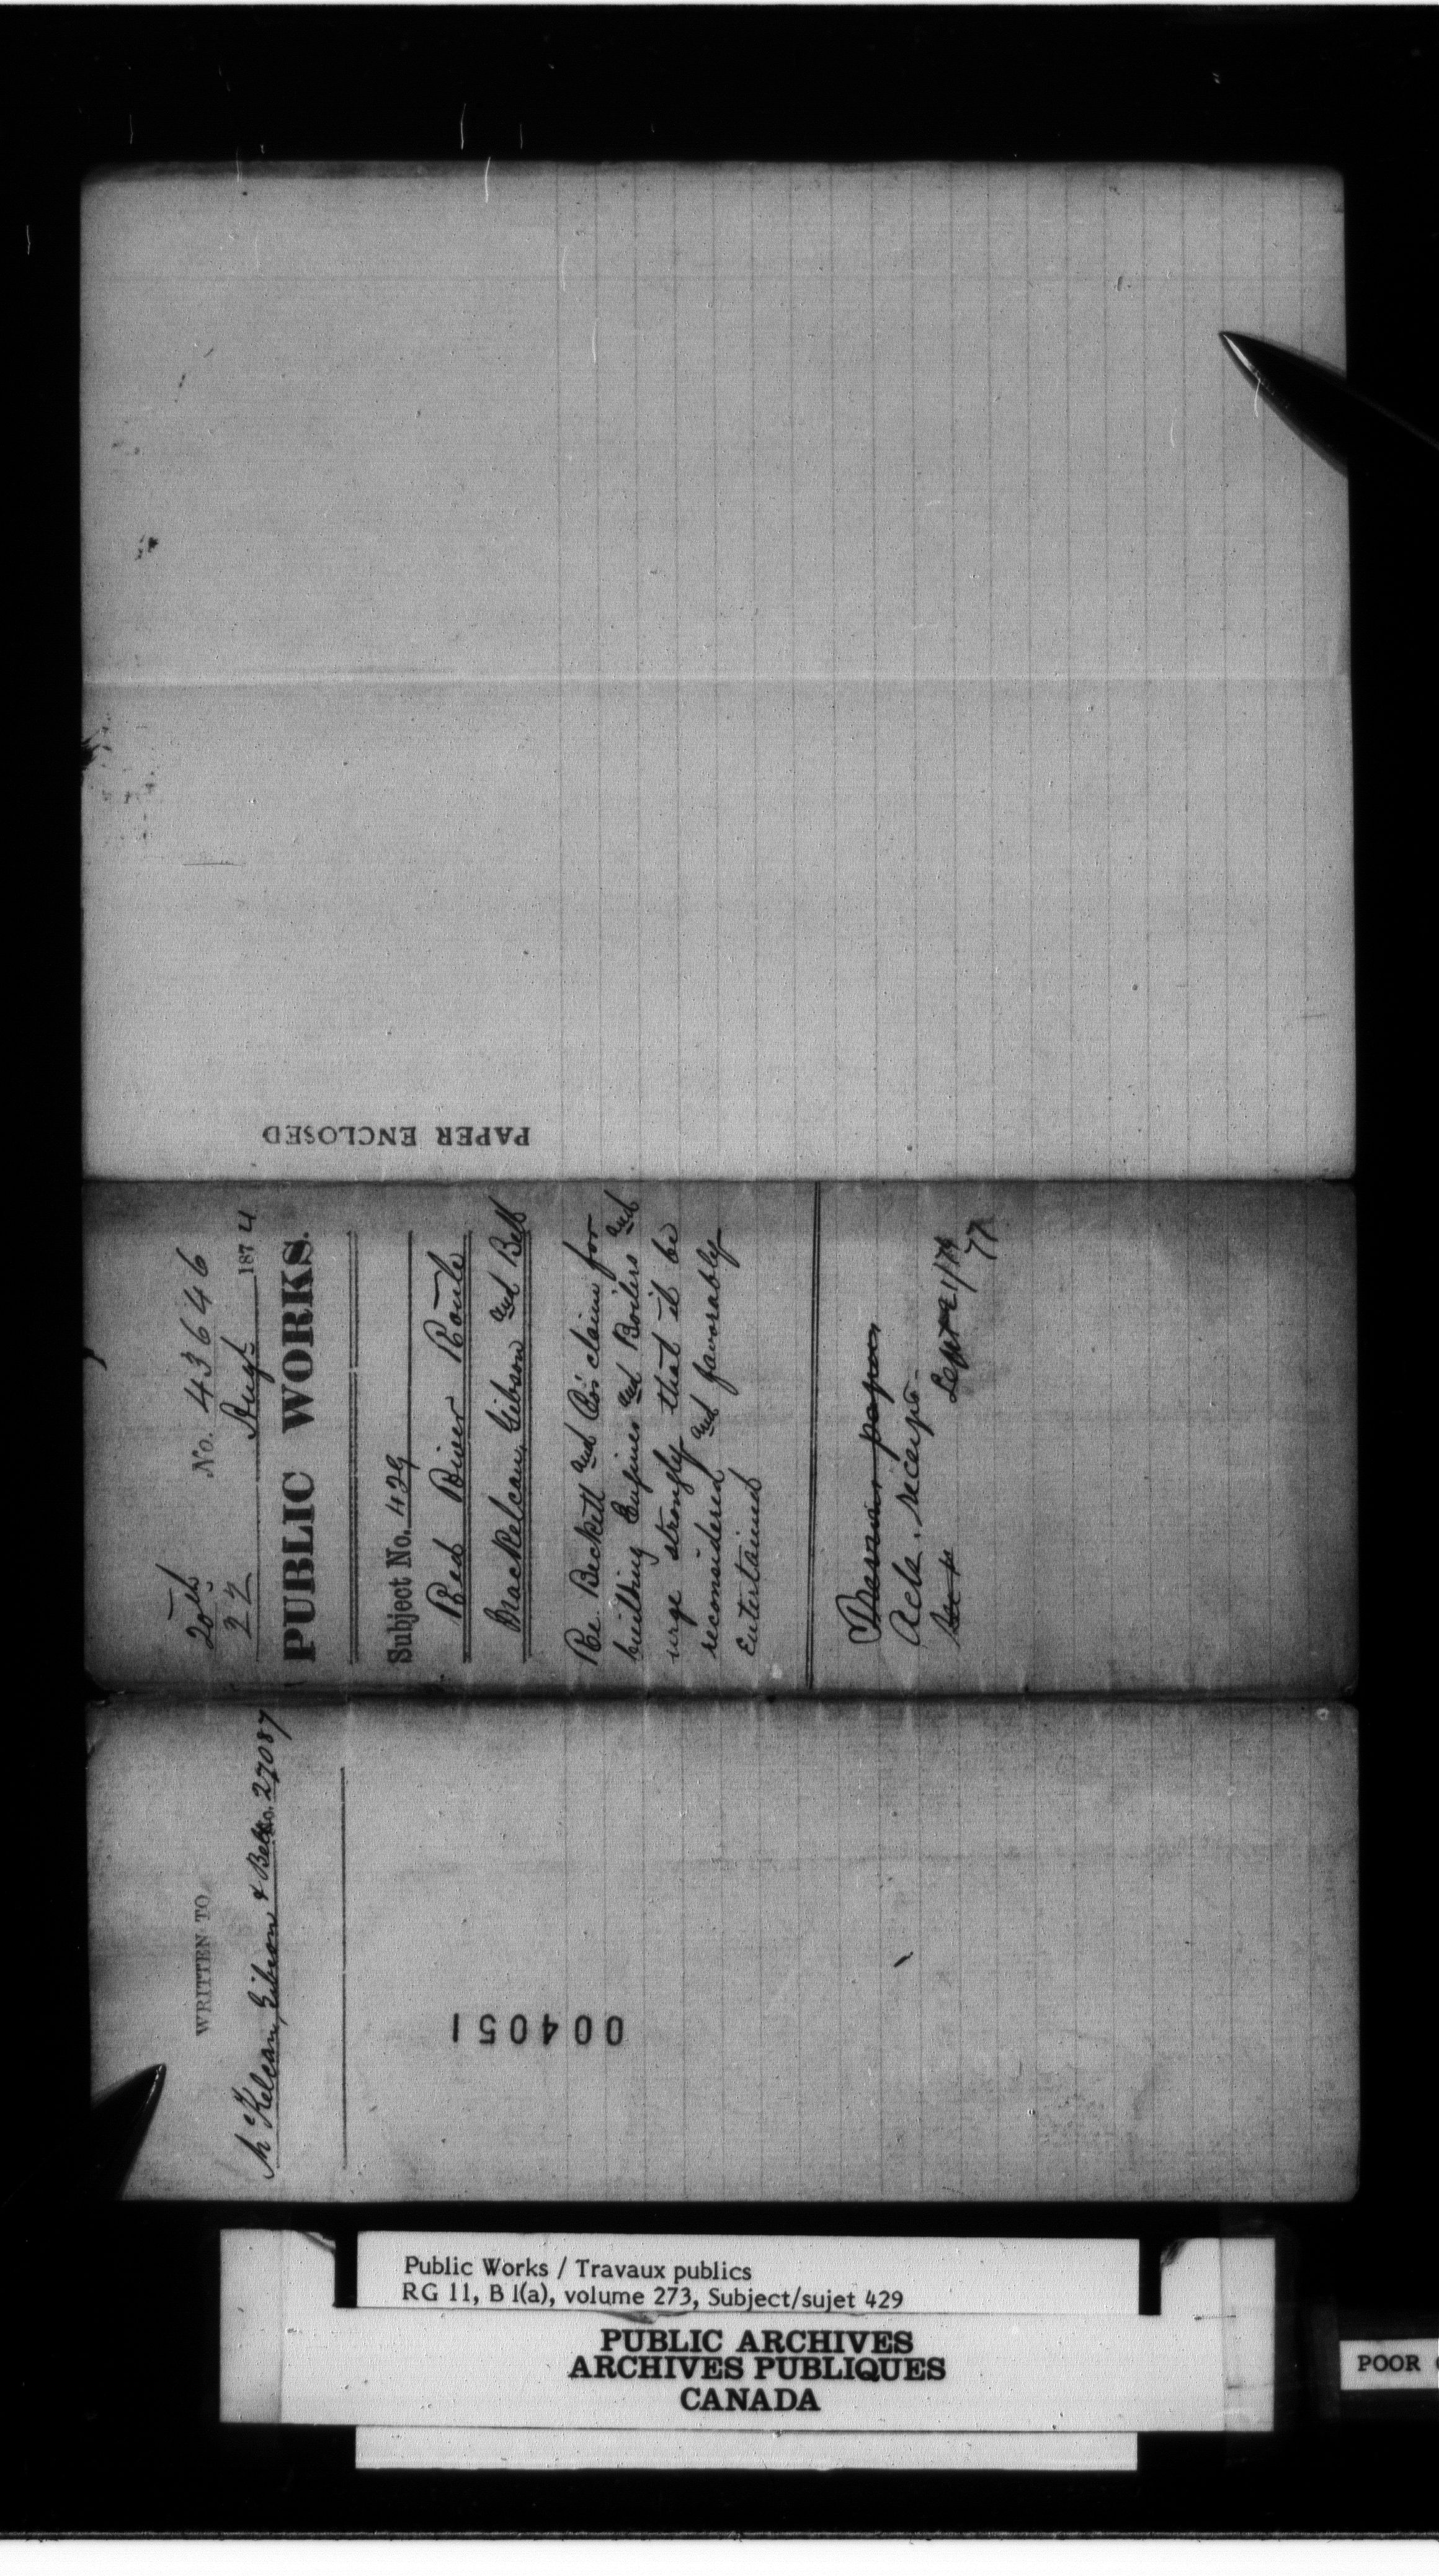 PAPER ENCLOSED
No. 43646
20th
22 Augt 1874
PUBLIC WORKS.
Subject No. 429
Red River Route
MacKelcan, Gibson and Bell
Re. Beckett and Co's claim for
building Engines and Boilers and
urge strongly that it be
reconsidered and favorably
Entertained
Ackn. receipt
Sept 21/74
77
WRITTEN TO
McKelcan, Gibson & Bell No. 27087
004051
Public Works / Travaux publics
RG 11, B 1(a), volume 273, Subject/sujet 429
PUBLIC ARCHIVES
ARCHIVES PUBLIQUES
CANADA
POOR